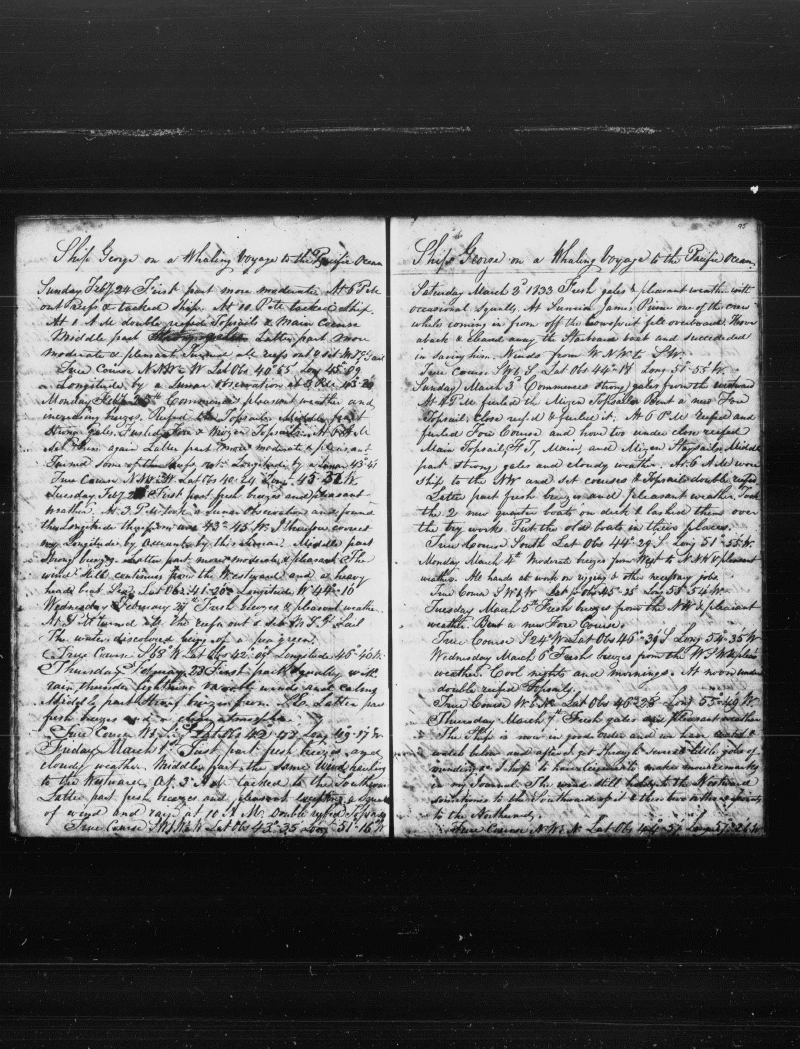 Ship George on a Whaling Voyage to the Pacific Ocean
Sunday Feby 24 First part more moderate At 6 P M
out Reefs & tacked Ship. At 10 P M tacked Ship.
At 1 A M double reefed Topsails & Main Course
Middle part Latter part more
moderate & pleasant turned all reefs out & set M T G Sail
True Course N W Lat Obs 40 65 Long 45 09
Longitude by a Lunar observation at 3 P M 43 29
Monday Feby 25th Commences pleasant weather and
increasing breezes. Reefed the Topsails Middle part
Strong Gales. Furled Fore & Mizen Topsails At 6 A M
Set them again Latter part more moderate & pleasant
Turned some of the reefs out. Longitude by a Lunar 43 41
True Course N W W. Lat Obs 40 Long 45 52 W.
Tuesday Feby 26 First part fresh breezes and pleasant
weather. At 3 P M took a Lunar Observation and found
the Longitude 43°-45 W. I therefore correct
my Longitude by Account by this Lunar. Middle part
strong breezes Latter part more moderate & pleasant The
wind still continues from the Westward and a heavy
head beat Sea. Lat Obs 41-20 Longitude W 44-10
Wednesday February 27th Fresh breezes & pleasant weather
At turned all the reefs out & set M T G Sail
The water discolored being of a pea green.
True Course S 68° W Lat Obs 42-09 Longitude 46°40 W.
Thursday February 28 First part squally with
rain thunder lightning variable winds and calms
Middle part Strong breezes from Latter part
fresh breezes and a clear atmosphere.
True Course W Lat Obs 42-42 Long 49-17 W
Friday March 1st First part fresh breezes and
cloudy weather. Middle part the same wind hauling
to the Westward At 3 A M tacked to the Southward
Latter part fresh breezes and pleasant excepting a squall
of wind and rain at 10 A M. Double reefed Topsails
True Course S W W Lat Obs 43°-35 Long 51°-16 W
95
Ship George on a Whaling Voyage to the Pacific Ocean.
Saturday March 2d 1833 Fresh gales & pleasant weather with
occasional Squalls. At Sunrise James one of the crew
while coming in from off the bowsprit fell overboard. Hove
aback & cleared away the Starboard boat and succeeded
in saving him. Winds from W N W to S W.
True Course S W b S Lat Obs 44°-14 Long 51°-55 W.
Sunday March 3d Commences strong gales from the westward
At 4 P M furled the Mizen Topsail Bent a new Fore
Topsail, close reefed & furled it. At 6 P M reefed and
furled Fore Course and hove too under close reefed
Main Topsail F. T. Main, and Mizen Staysails Middle
part strong gales and cloudy weather. At 6 A M wore
ship to the N W and set courses & Topsails double reefed
Latter part fresh breezes and pleasant weather. Took
the 2 new quarter boats on deck & lashed them over
the try works Put the old boats in theirs places.
True Course South Lat Obs 44°-29 S Long 51°-55 W.
Monday March 4th Moderate breezes from West to N N W & pleasant
weather. All hands at work on rigging & other necessary jobs.
True Course S W b W Lat Obs 45°-25 Long 53°-54 W.
Tuesday March 5th Fresh breezes from the N W & pleasant
weather. Bent a new Fore Course.
True Course S 24° W Lat Obs 46°-39 S Long 54-35 W
Wednesday March 6th Fresh breezes from the W S W & pleasant
weather. Cool nights and mornings. At noon under
double reefed Topsails.
True Course W b N Lat Obs 46° Long 55°-49 W.
Thursday March 7th Fresh gales and Pleasant weather
The Ship is now in good order and we have coated &
and after I get through several little jobs of
mending &c I hope to have leisure to make some remarks
in my Journal. The wind still holds to the Westward
sometimes to the Southward of it & then two or three points
to the Northward.
True Course N W b N Lat Obs 44°-57 Long 57°-26 W